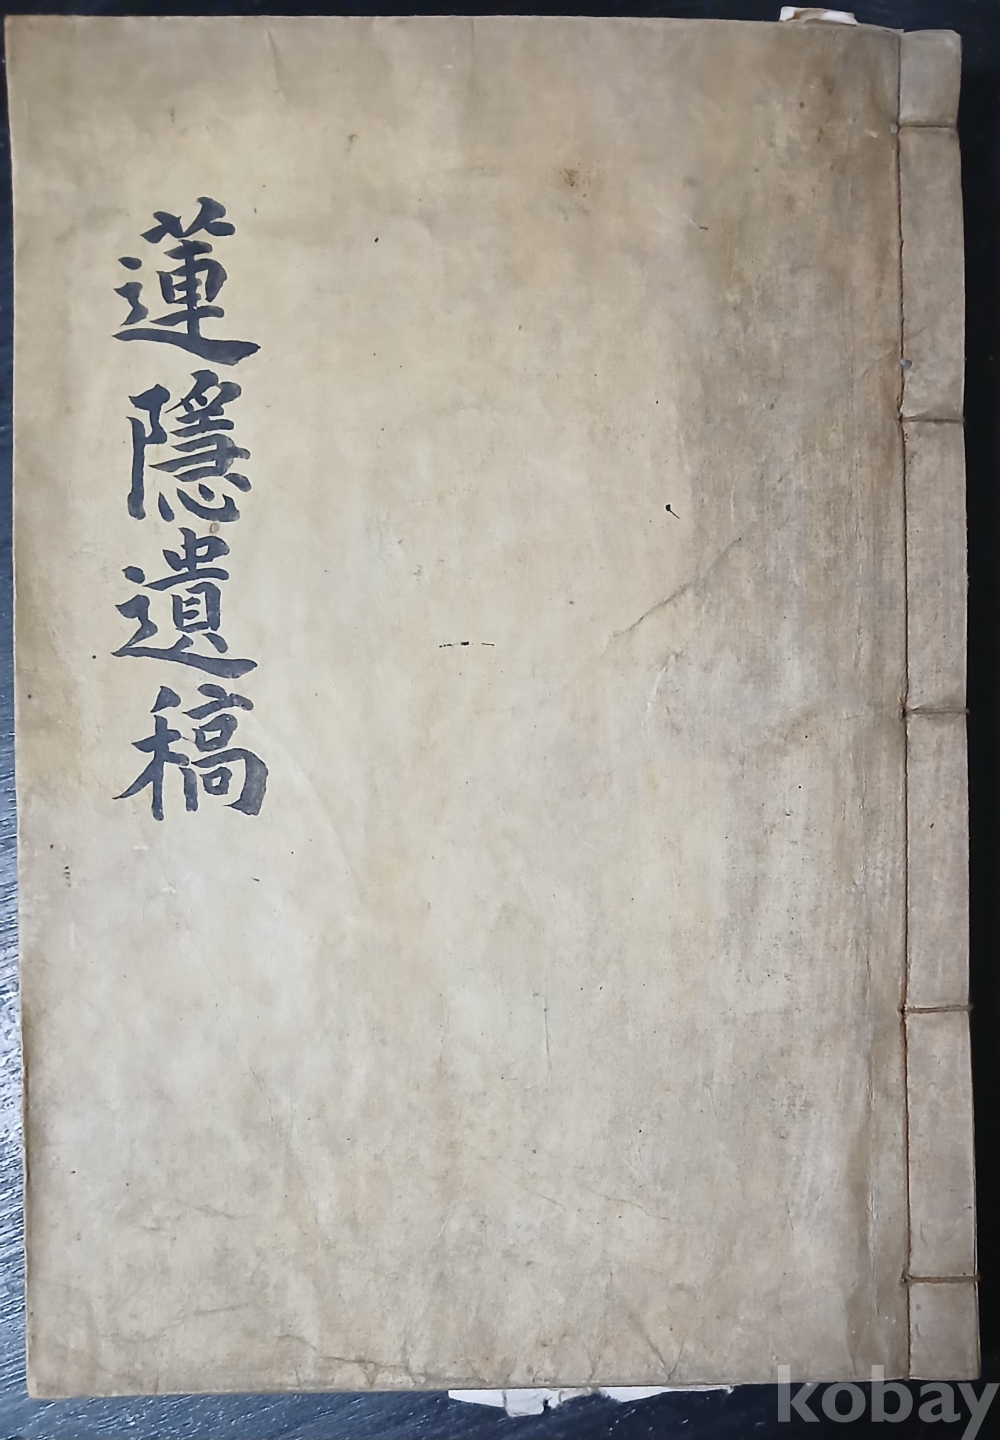 蓮隱遺稿
kobay